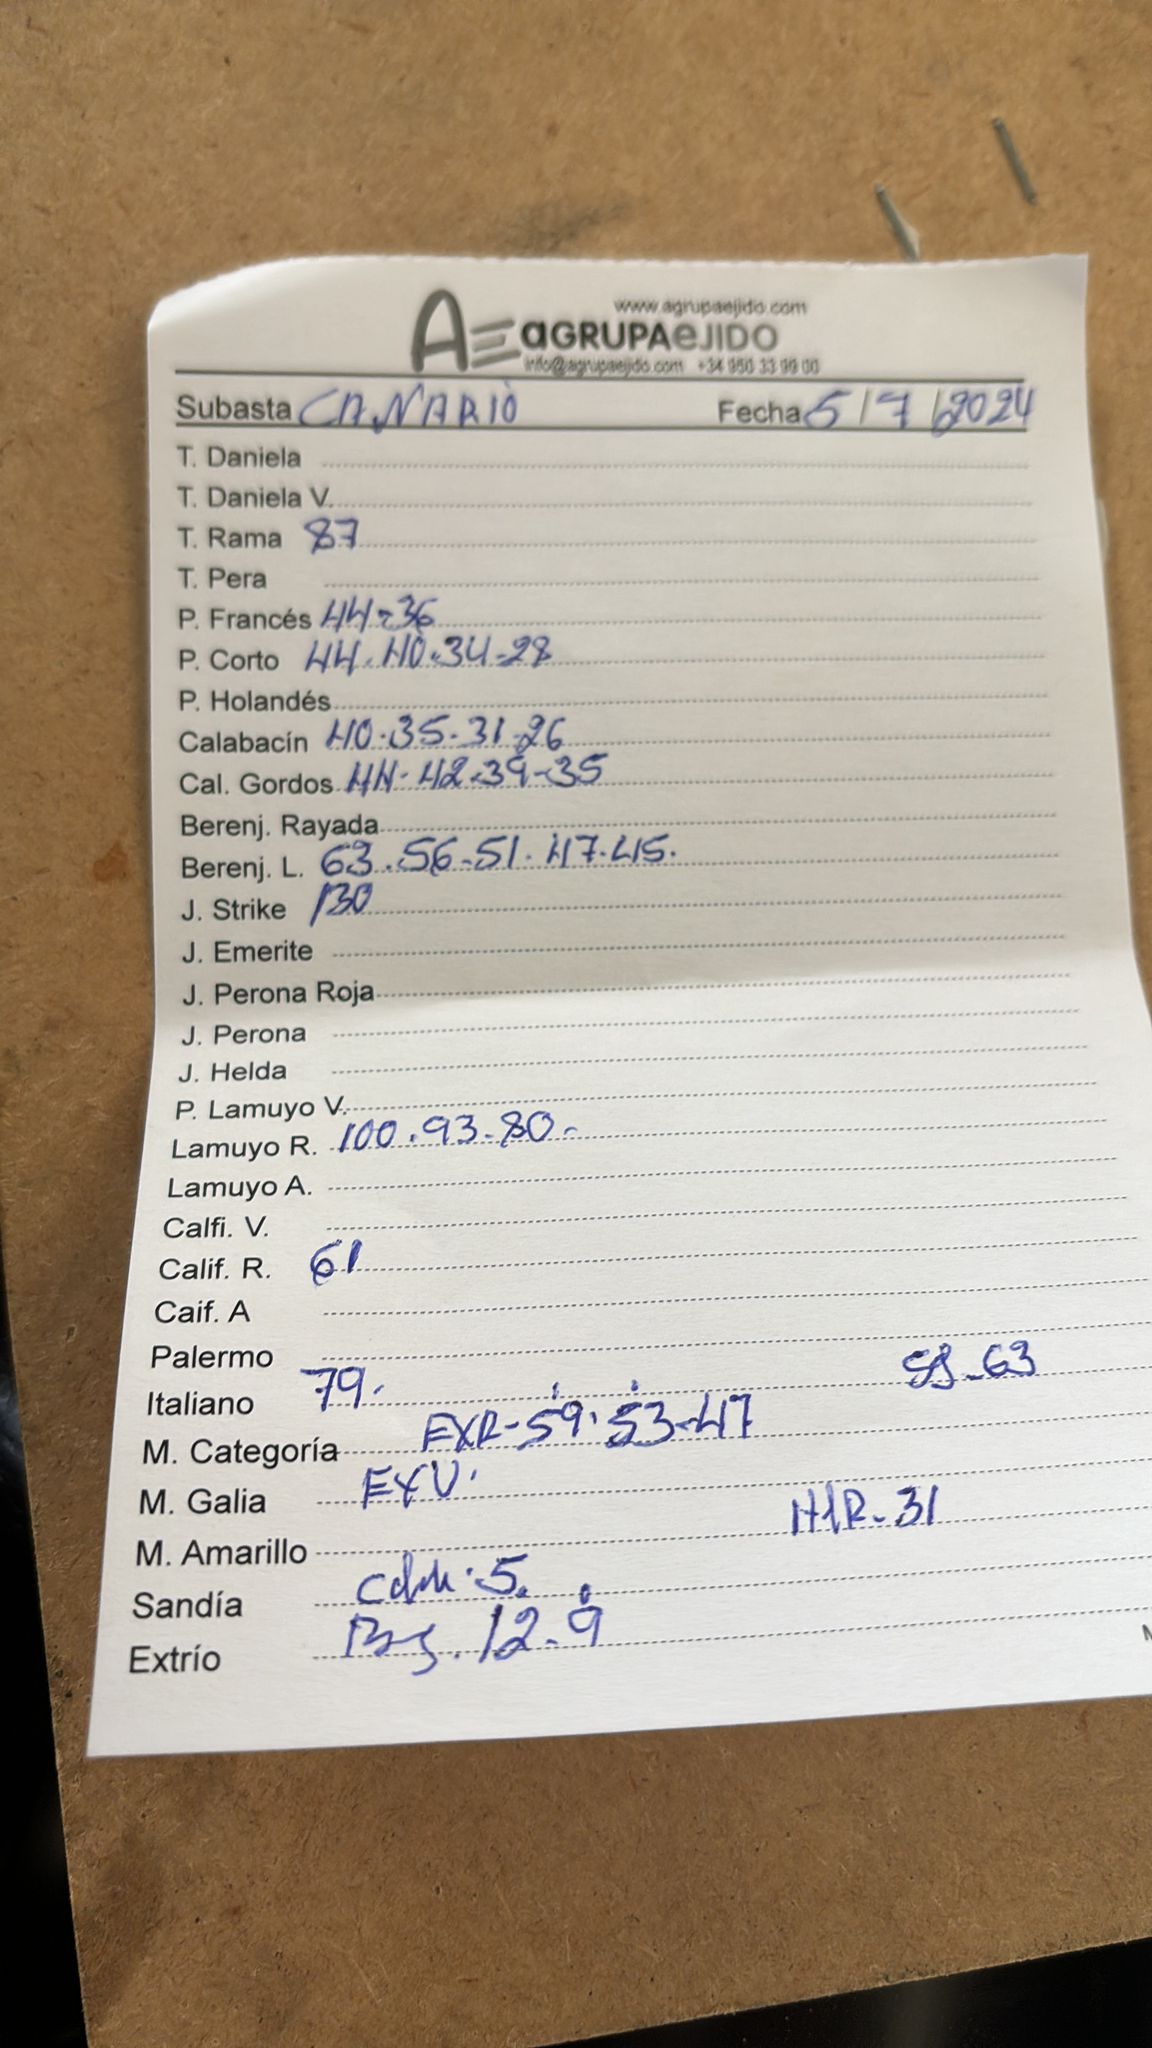 www.agrupaejido.com
AE aGRUPAeJIDO
info@agrupaejido.com +34 950 33 99 00
Subasta CANARIO Fecha 5/7/2024
T. Daniela
T. Daniela V.
T. Rama 87
T. Pera
P. Francés 44-36
P. Corto 44.40.34-28
P. Holandés
Calabacín 40.35.31-26
Cal. Gordos 44-42-39-35
Berenj. Rayada
Berenj. L. 63.56-51.47.45.
J. Strike 130
J. Emerite
J. Perona Roja
J. Perona
J. Helda
P. Lamuyo V.
Lamuyo R. 100.93-80-
Lamuyo A.
Calfi. V.
Calif. R. 61
Caif. A
Palermo
Italiano 79. -63
M. Categoría EXR-59.53-47
M. Galia EXV.
M. Amarillo -31
Sandía 5.
Extrío 12-9
M